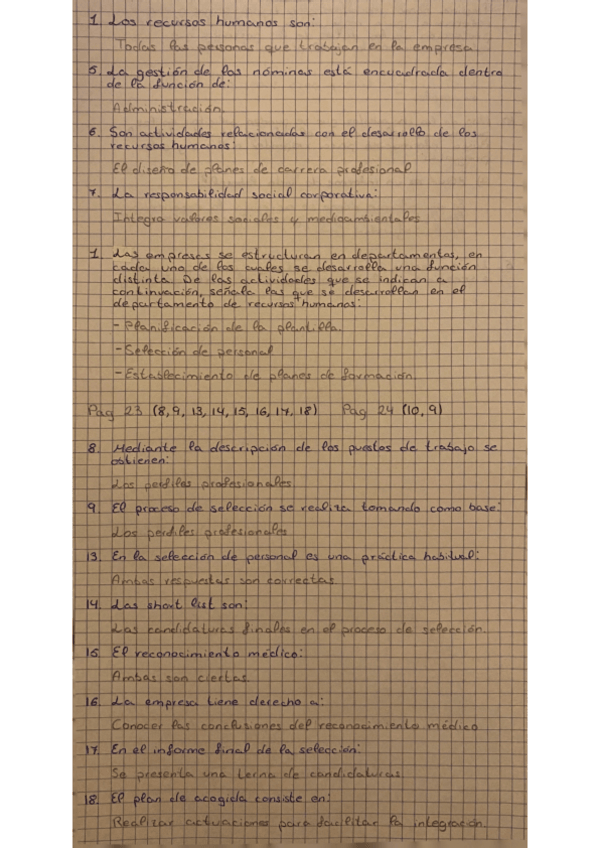 1. Los recursos humanos son:
Todas las personas que trabajan en la empresa
5. La gestión de las nóminas está encuadrada dentro
de la función de:
Administración.
6. Son actividades relacionadas con el desarrollo de los
recursos humanos:
El diseño de planes de carrera profesional
7. La responsabilidad social corporativa:
Integra valores sociales y medioambientales
1. Las empresas se estructuran en departamentos, en
cada uno de los cuales se desarrolla una función
distinta. De las actividades que se indican a
continuación, señala las que se desarrollan en el
departamento de recursos humanos:
- Planificación de la plantilla.
- Selección de personal
- Establecimiento de planes de formación.
Pág 23 (8, 9, 13, 14, 15, 16, 17, 18) Pág 24 (10, 9)
8. Mediante la descripción de los puestos de trabajo se
obtienen:
Los perfiles profesionales.
9. El proceso de selección se realiza tomando como base:
Los perfiles profesionales
13. En la selección de personal es una práctica habitual:
Ambas respuestas son correctas.
14. Las short list son:
Las candidaturas finales en el proceso de selección.
15. El reconocimiento médico:
Ambas son ciertas
16. La empresa tiene derecho a:
Conocer las conclusiones del reconocimiento médico
17. En el informe final de la selección:
Se presenta una terna de candidaturas
18. El plan de acogida consiste en:
Realizar actuaciones para facilitar la integración.